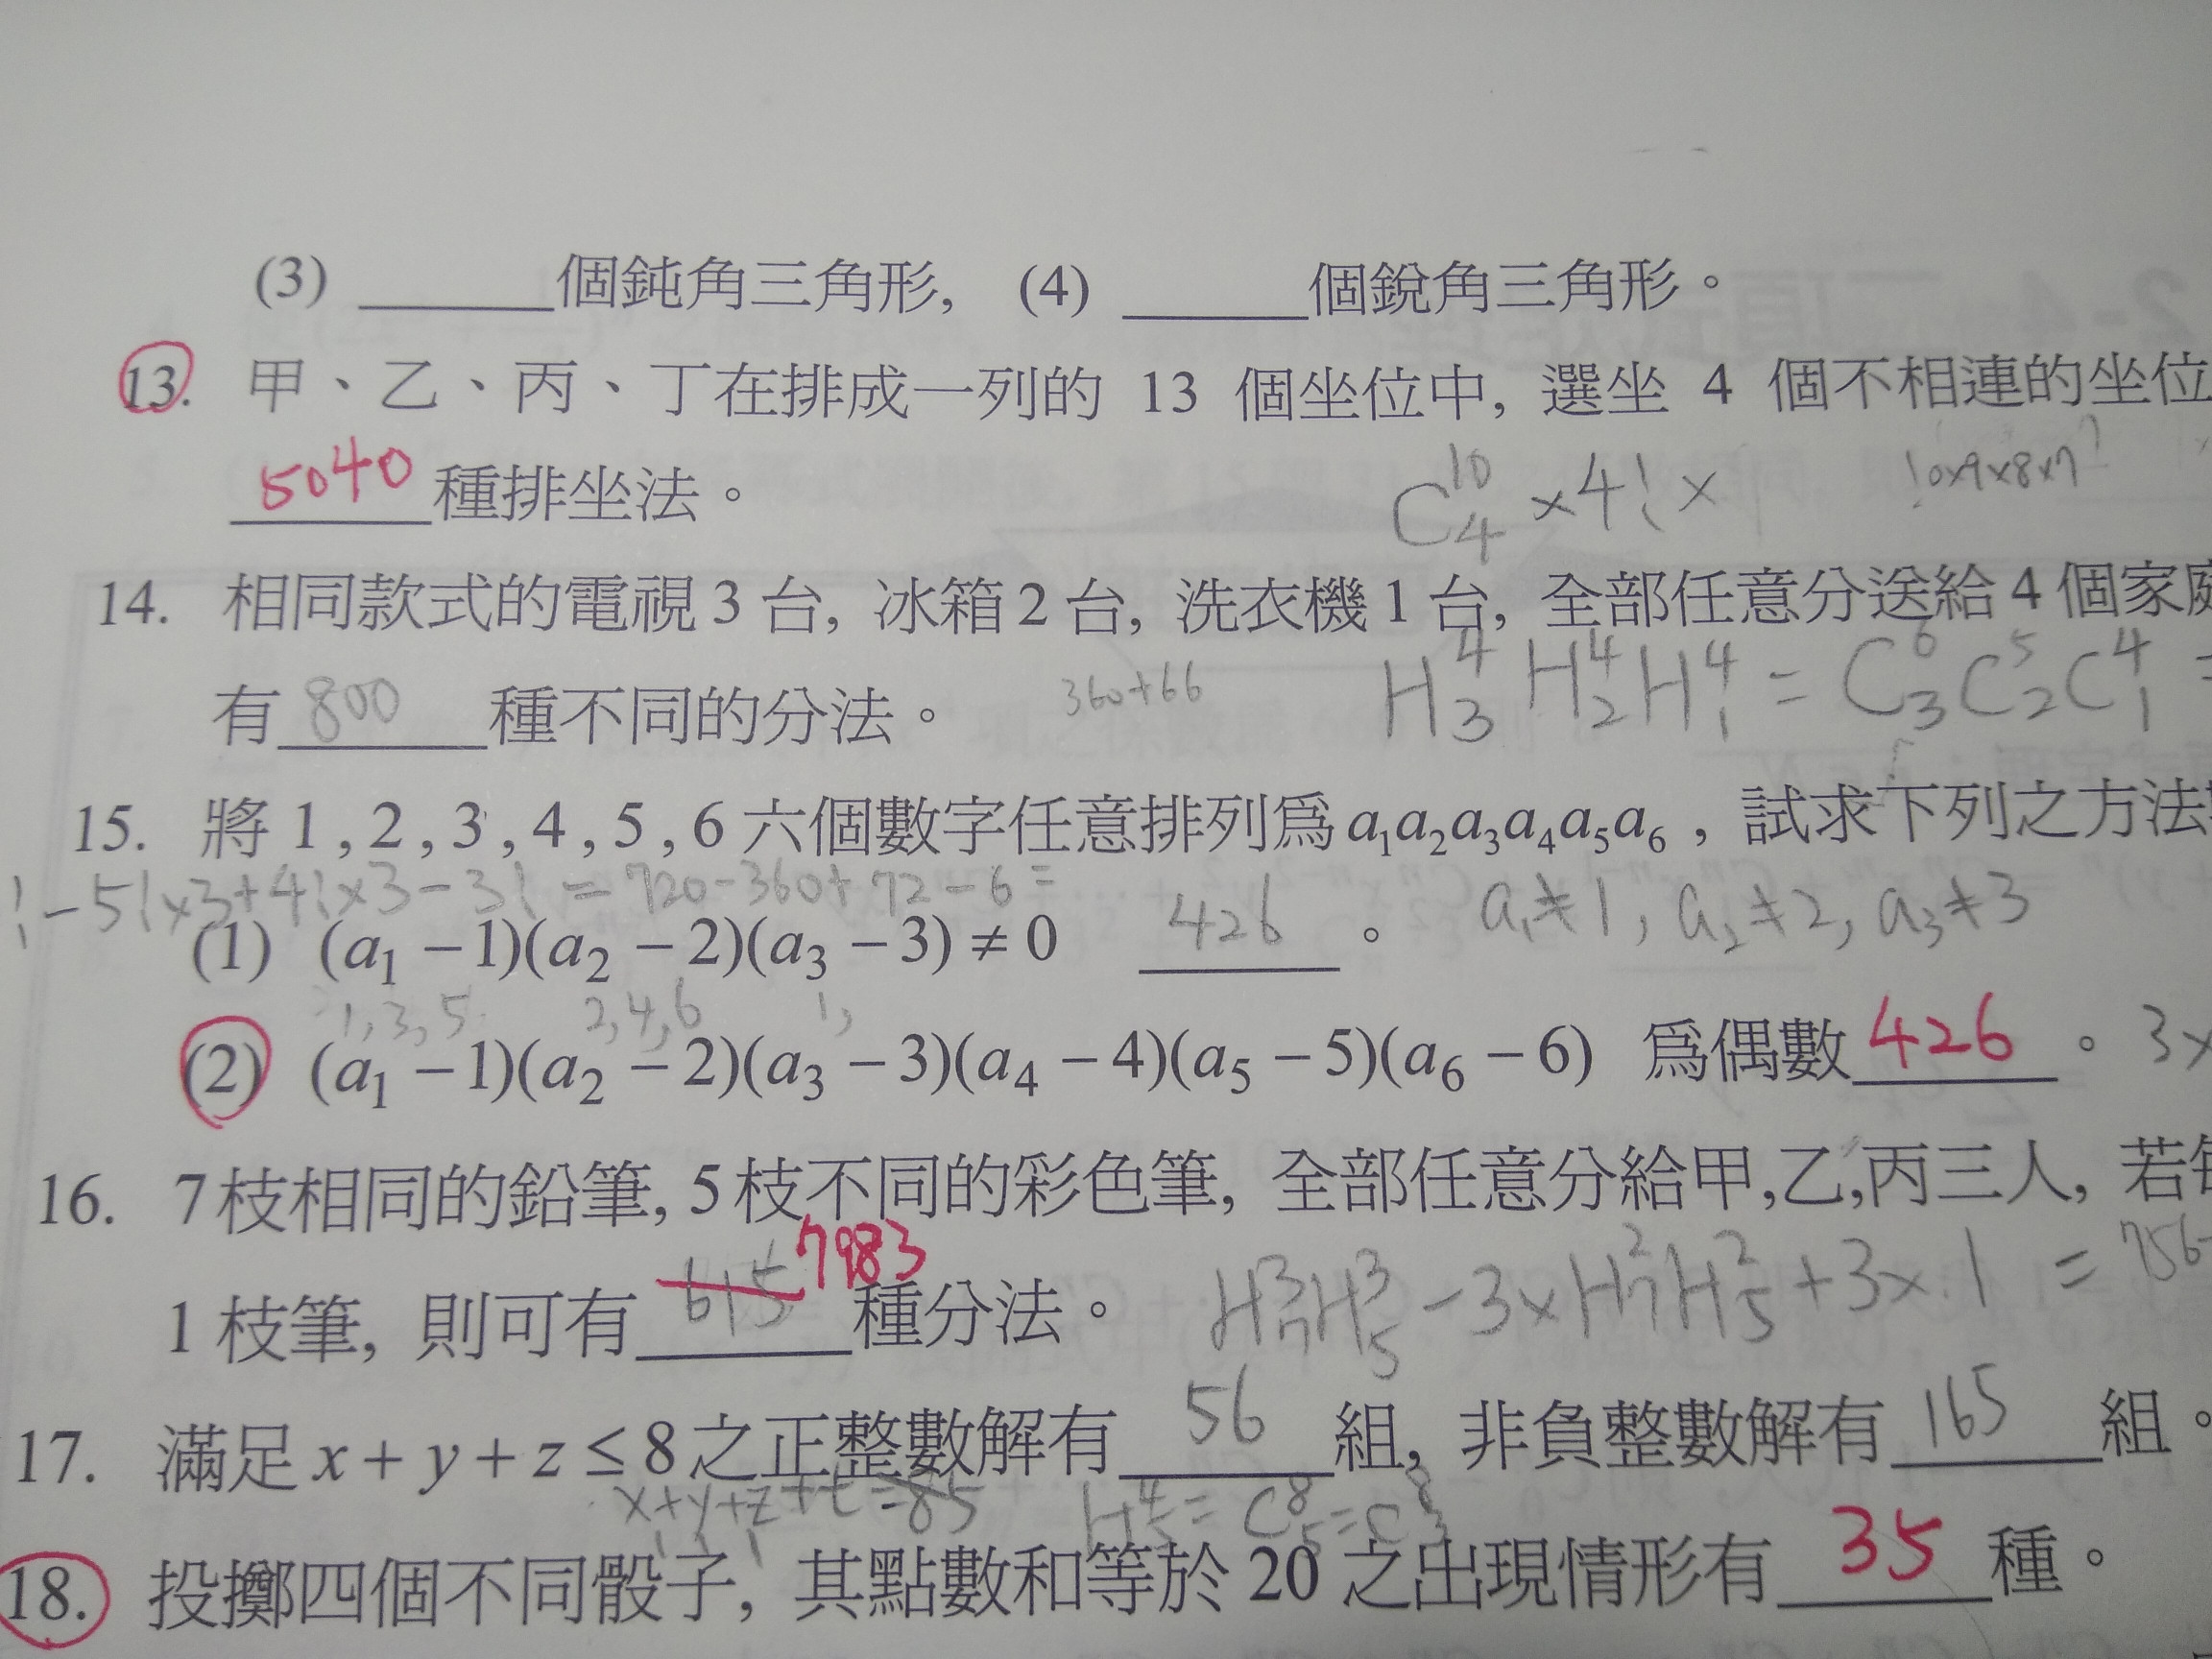 (3) ______個鈍角三角形, (4) ______個銳角三角形。
13. 甲、乙、丙、丁在排成一列的 13 個坐位中, 選坐 4 個不相連的坐位
5040種排坐法。 C¹⁰₄ ×4! × 10×9×8×7
14. 相同款式的電視 3 台, 冰箱 2 台, 洗衣機 1 台, 全部任意分送給 4 個家庭
有 800 種不同的分法。 360+66 H⁴₃ H⁴₂ H⁴₁ = C⁶₃ C⁵₂ C⁴₁ =
15. 將 1 , 2 , 3 , 4 , 5 , 6 六個數字任意排列爲 a₁a₂a₃a₄a₅a₆ , 試求下列之方法
! -5!×3+4!×3-3! = 720-360+72-6=
(1) (a₁ − 1)(a₂ − 2)(a₃ − 3) ≠ 0 426 。 a₁≠1, a₂≠2, a₃≠3
1,3,5 2,4,6 1,
(2) (a₁ − 1)(a₂ − 2)(a₃ − 3)(a₄ − 4)(a₅ − 5)(a₆ − 6) 爲偶數 426 。 3×
16. 7 枝相同的鉛筆, 5 枝不同的彩色筆, 全部任意分給甲,乙,丙三人, 若每
1 枝筆, 則可有 615 7983 種分法。 H³₇H³₅ -3×H²₇H²₅ +3×1 = 756-
17. 滿足 x + y + z ≤ 8 之正整數解有 56 組, 非負整數解有 165 組。
x+y+z+t=85 H⁴₅ = C⁸₅ = C⁸₃
1 1 1
18. 投擲四個不同骰子, 其點數和等於 20 之出現情形有 35 種。